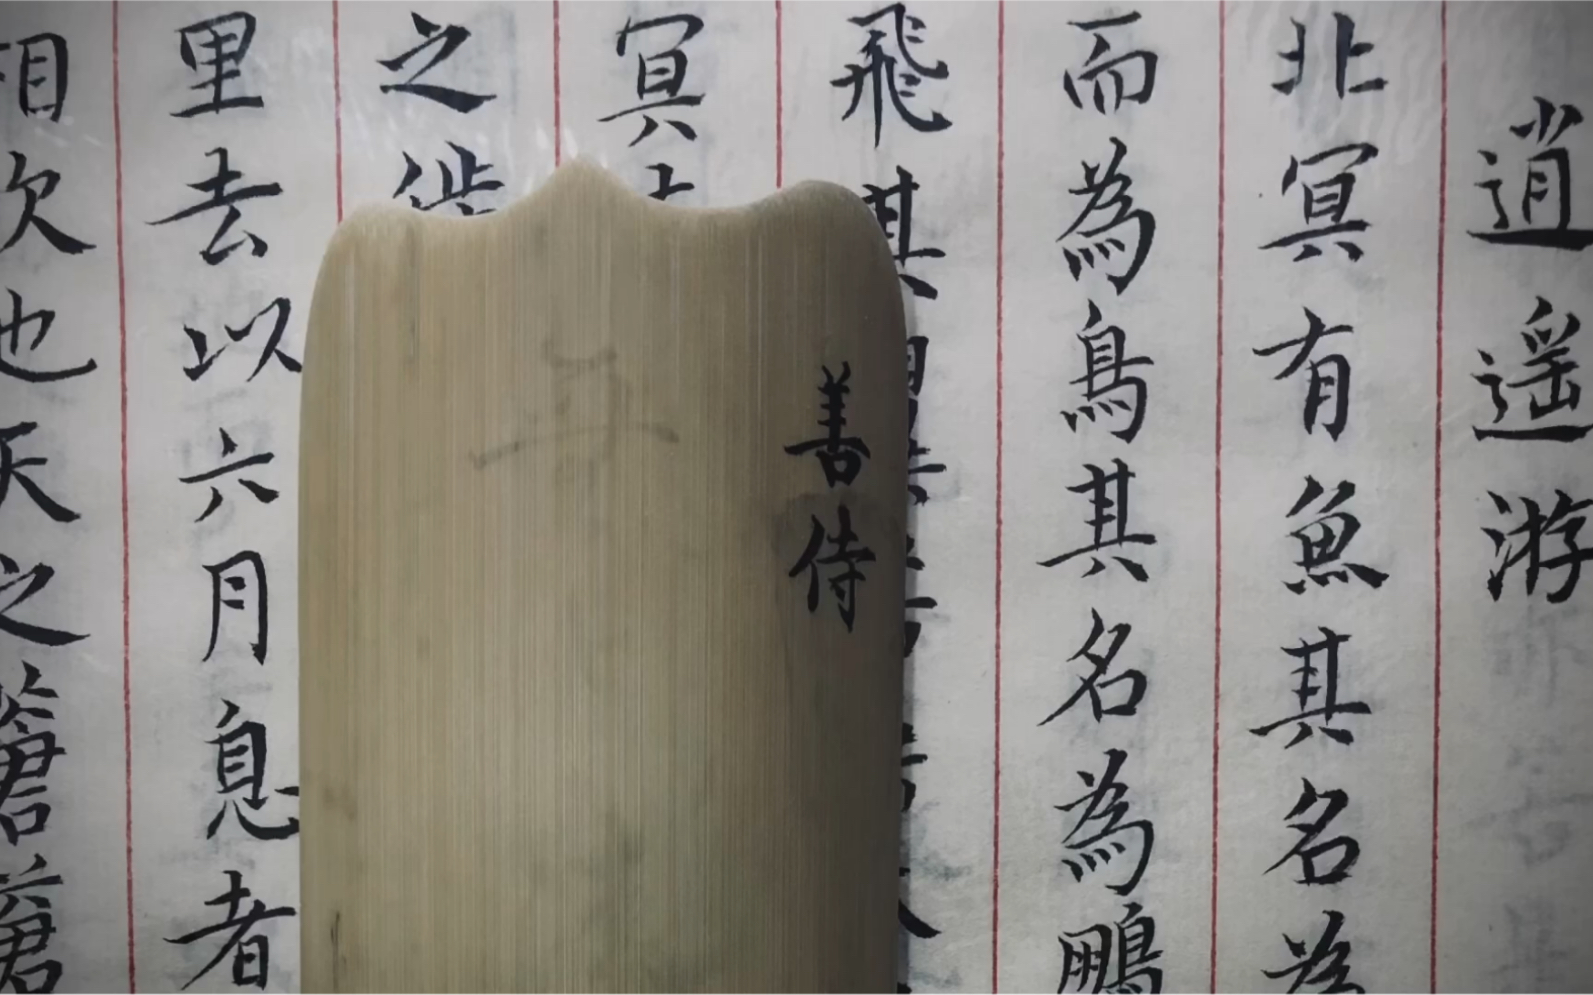 逍遥游
北冥有魚其名為
而為鳥其名為鵬
飛其
冥
之徙
里去以六月息者
相吹也天之蒼蒼
善侍